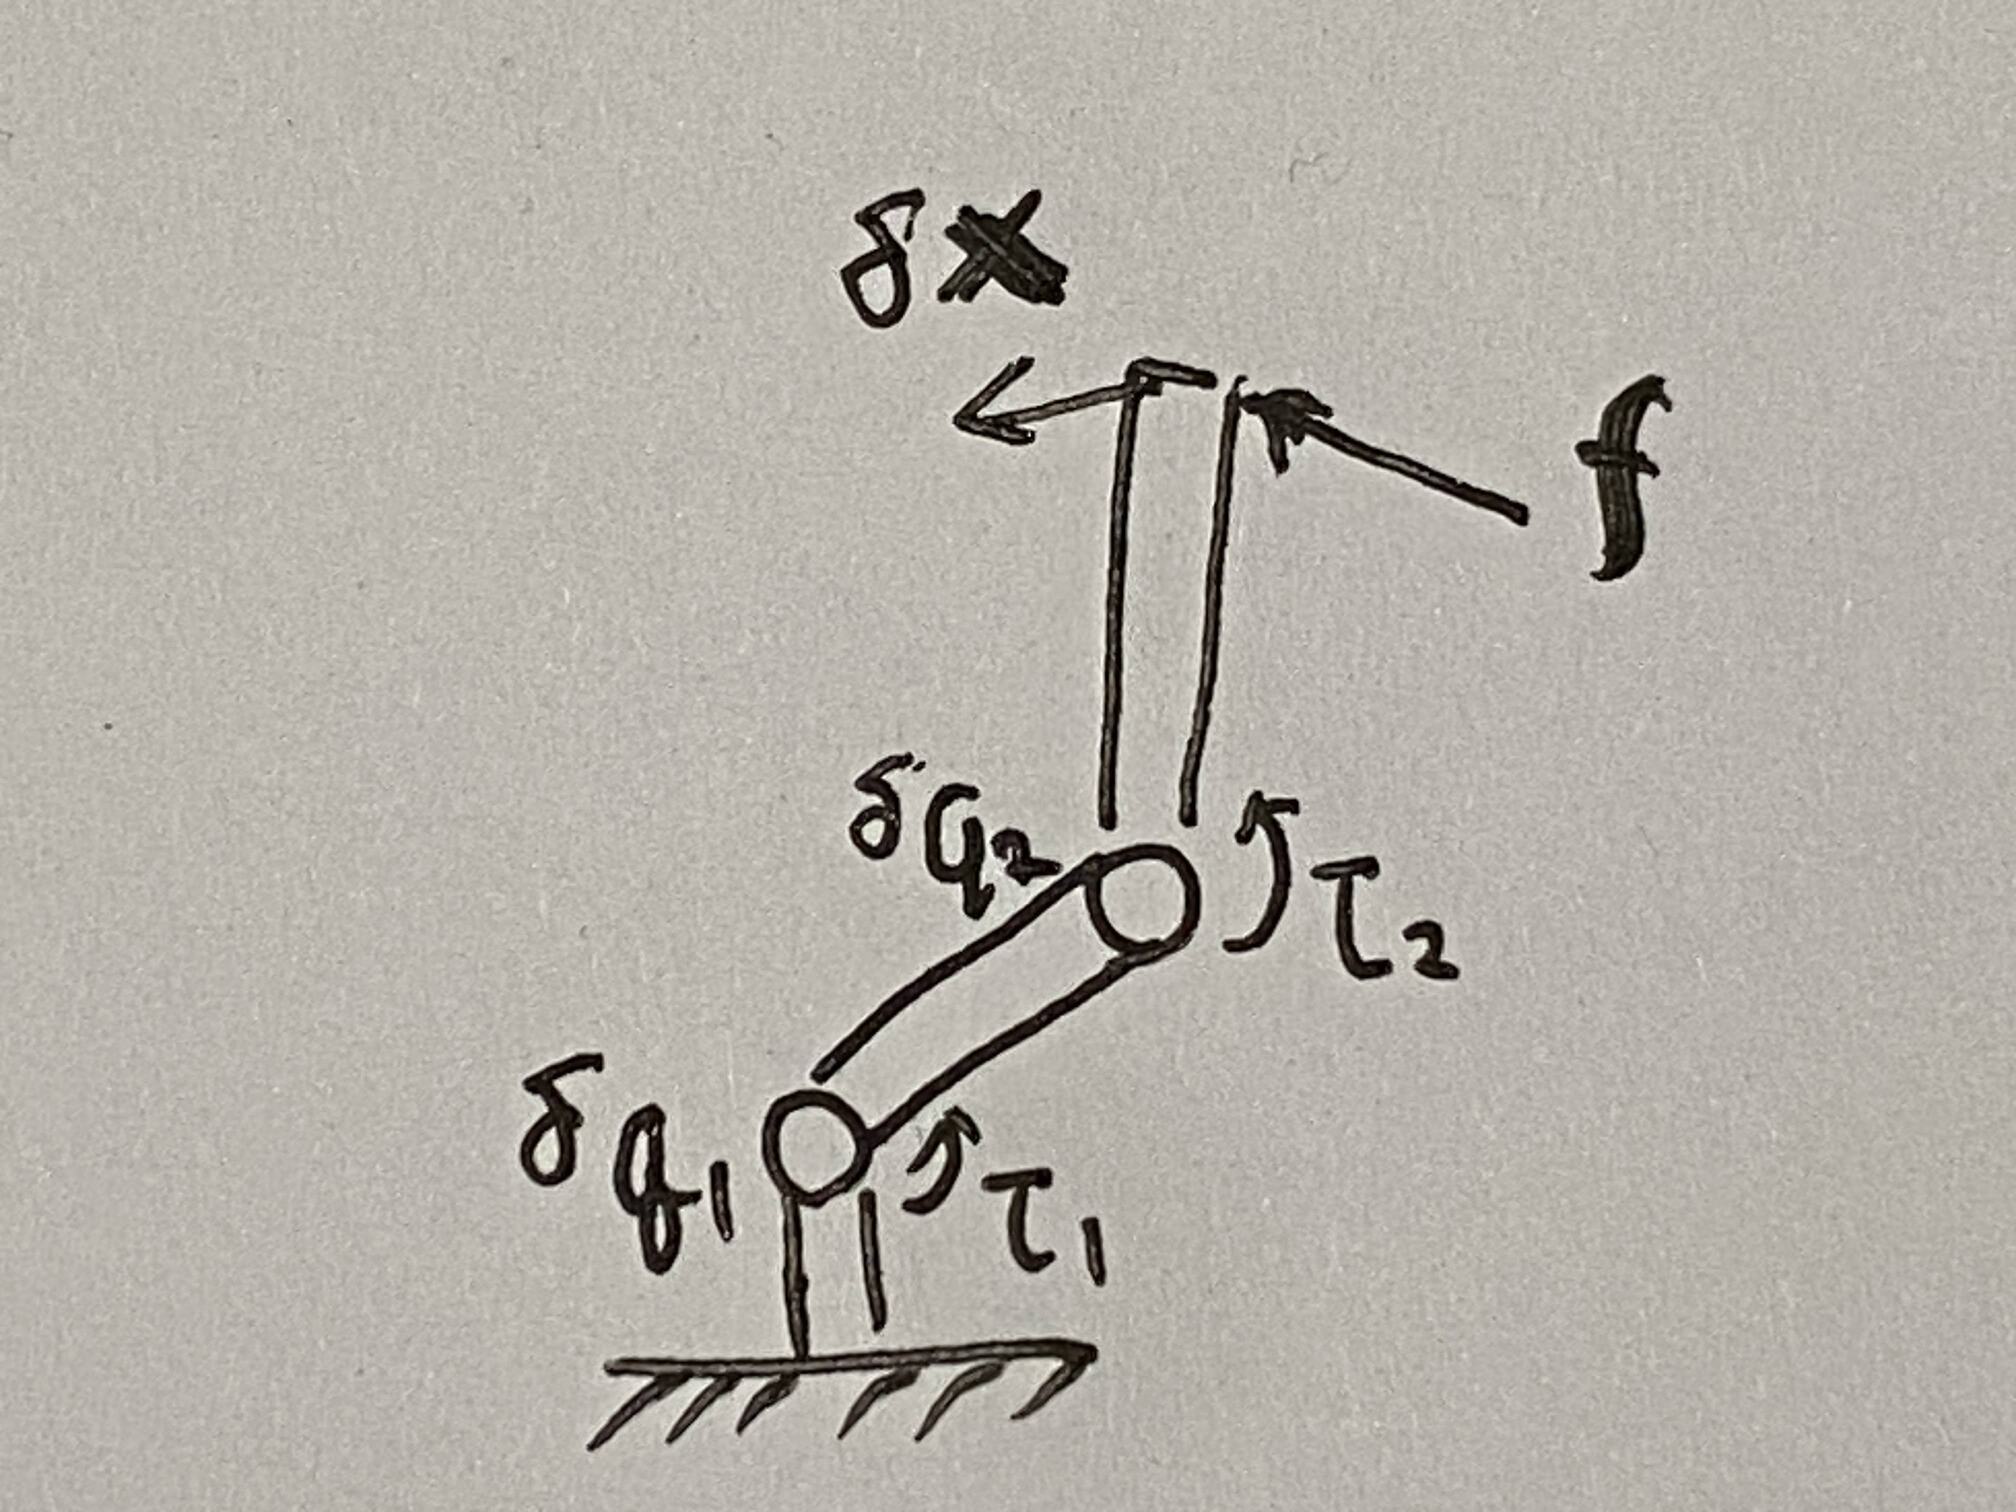 δx
f
δq₂
τ₂
δq₁
τ₁